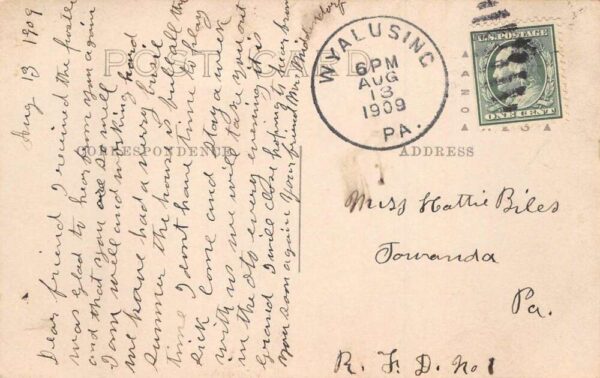 POST CARD
CORRESPONDENCE
ADDRESS
WYALUSING
6PM
AUG
13
1909
PA.
ONE CENT
Aug 13 1909
Dear friend I received the
was glad to hear from you again
and that you are so well
I am well and working hard
we have had a very busy
summer the house is full all the
time I dont have time to play
sick Come and stay a week
with us we will take you out
in the oto every evening it is
Grand I will close hoping to hear from
you soon again Your friend Mrs
Miss Hattie Biles
Towanda
Pa.
R. F. D. No 1